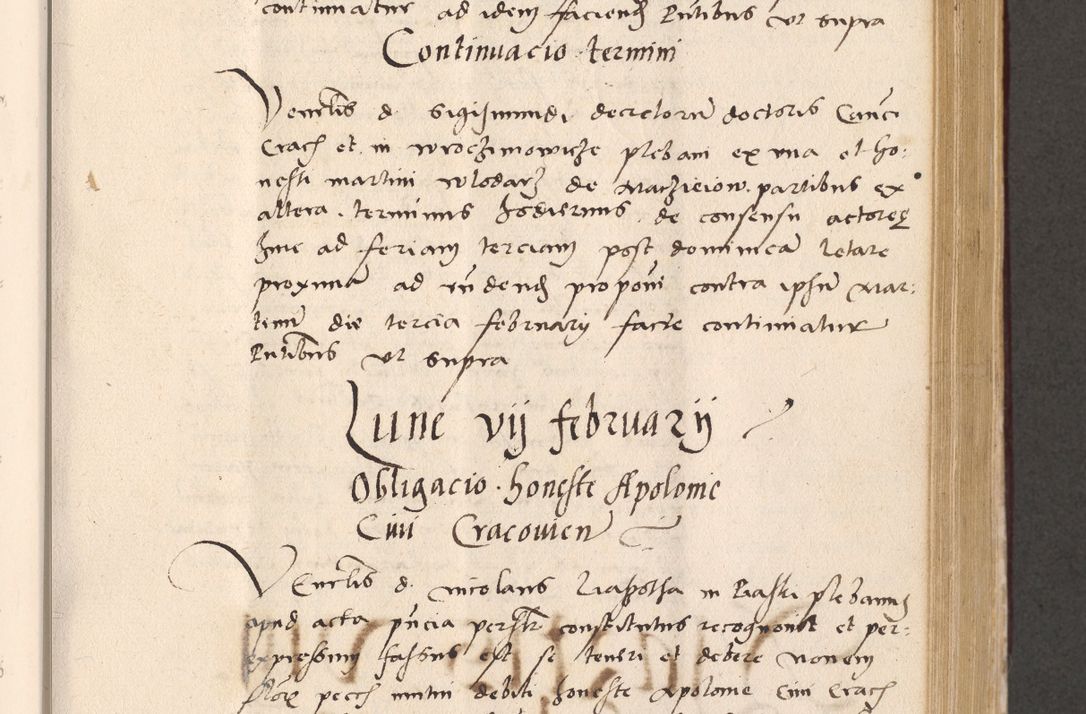 continuatur ad idem faciend Pntibus ut supra
Continuacio termini
Venerlis d. Sigismundi decretorum doctoris Canci
Crach et in wroczimowicze plebani ex una et ho:
nesti martini wlodarz de Maczieiow partibus ex
altera. terminus hodiernus de consensu actoreq
hinc ad feriam terciam post dominicam letare
proximam ad rndend proponi contra ipsum Mar:
tinum die tercia februarij facte continuatur
Pntibus ut supra
Lune vij februarij
Obligacio honeste Apolonie
Civi Cracovien
Venerlis d. nicolaus in plebanus
apud acta pncia personlr constitutus recognovit et per:
expressum fassus est se teneri et debere nonem
flor pecch mutui debiti honeste Apolonie Civi Crach